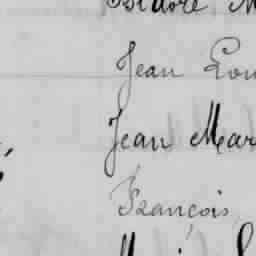 Isidore M
Jean Lou
Jean Mar
François